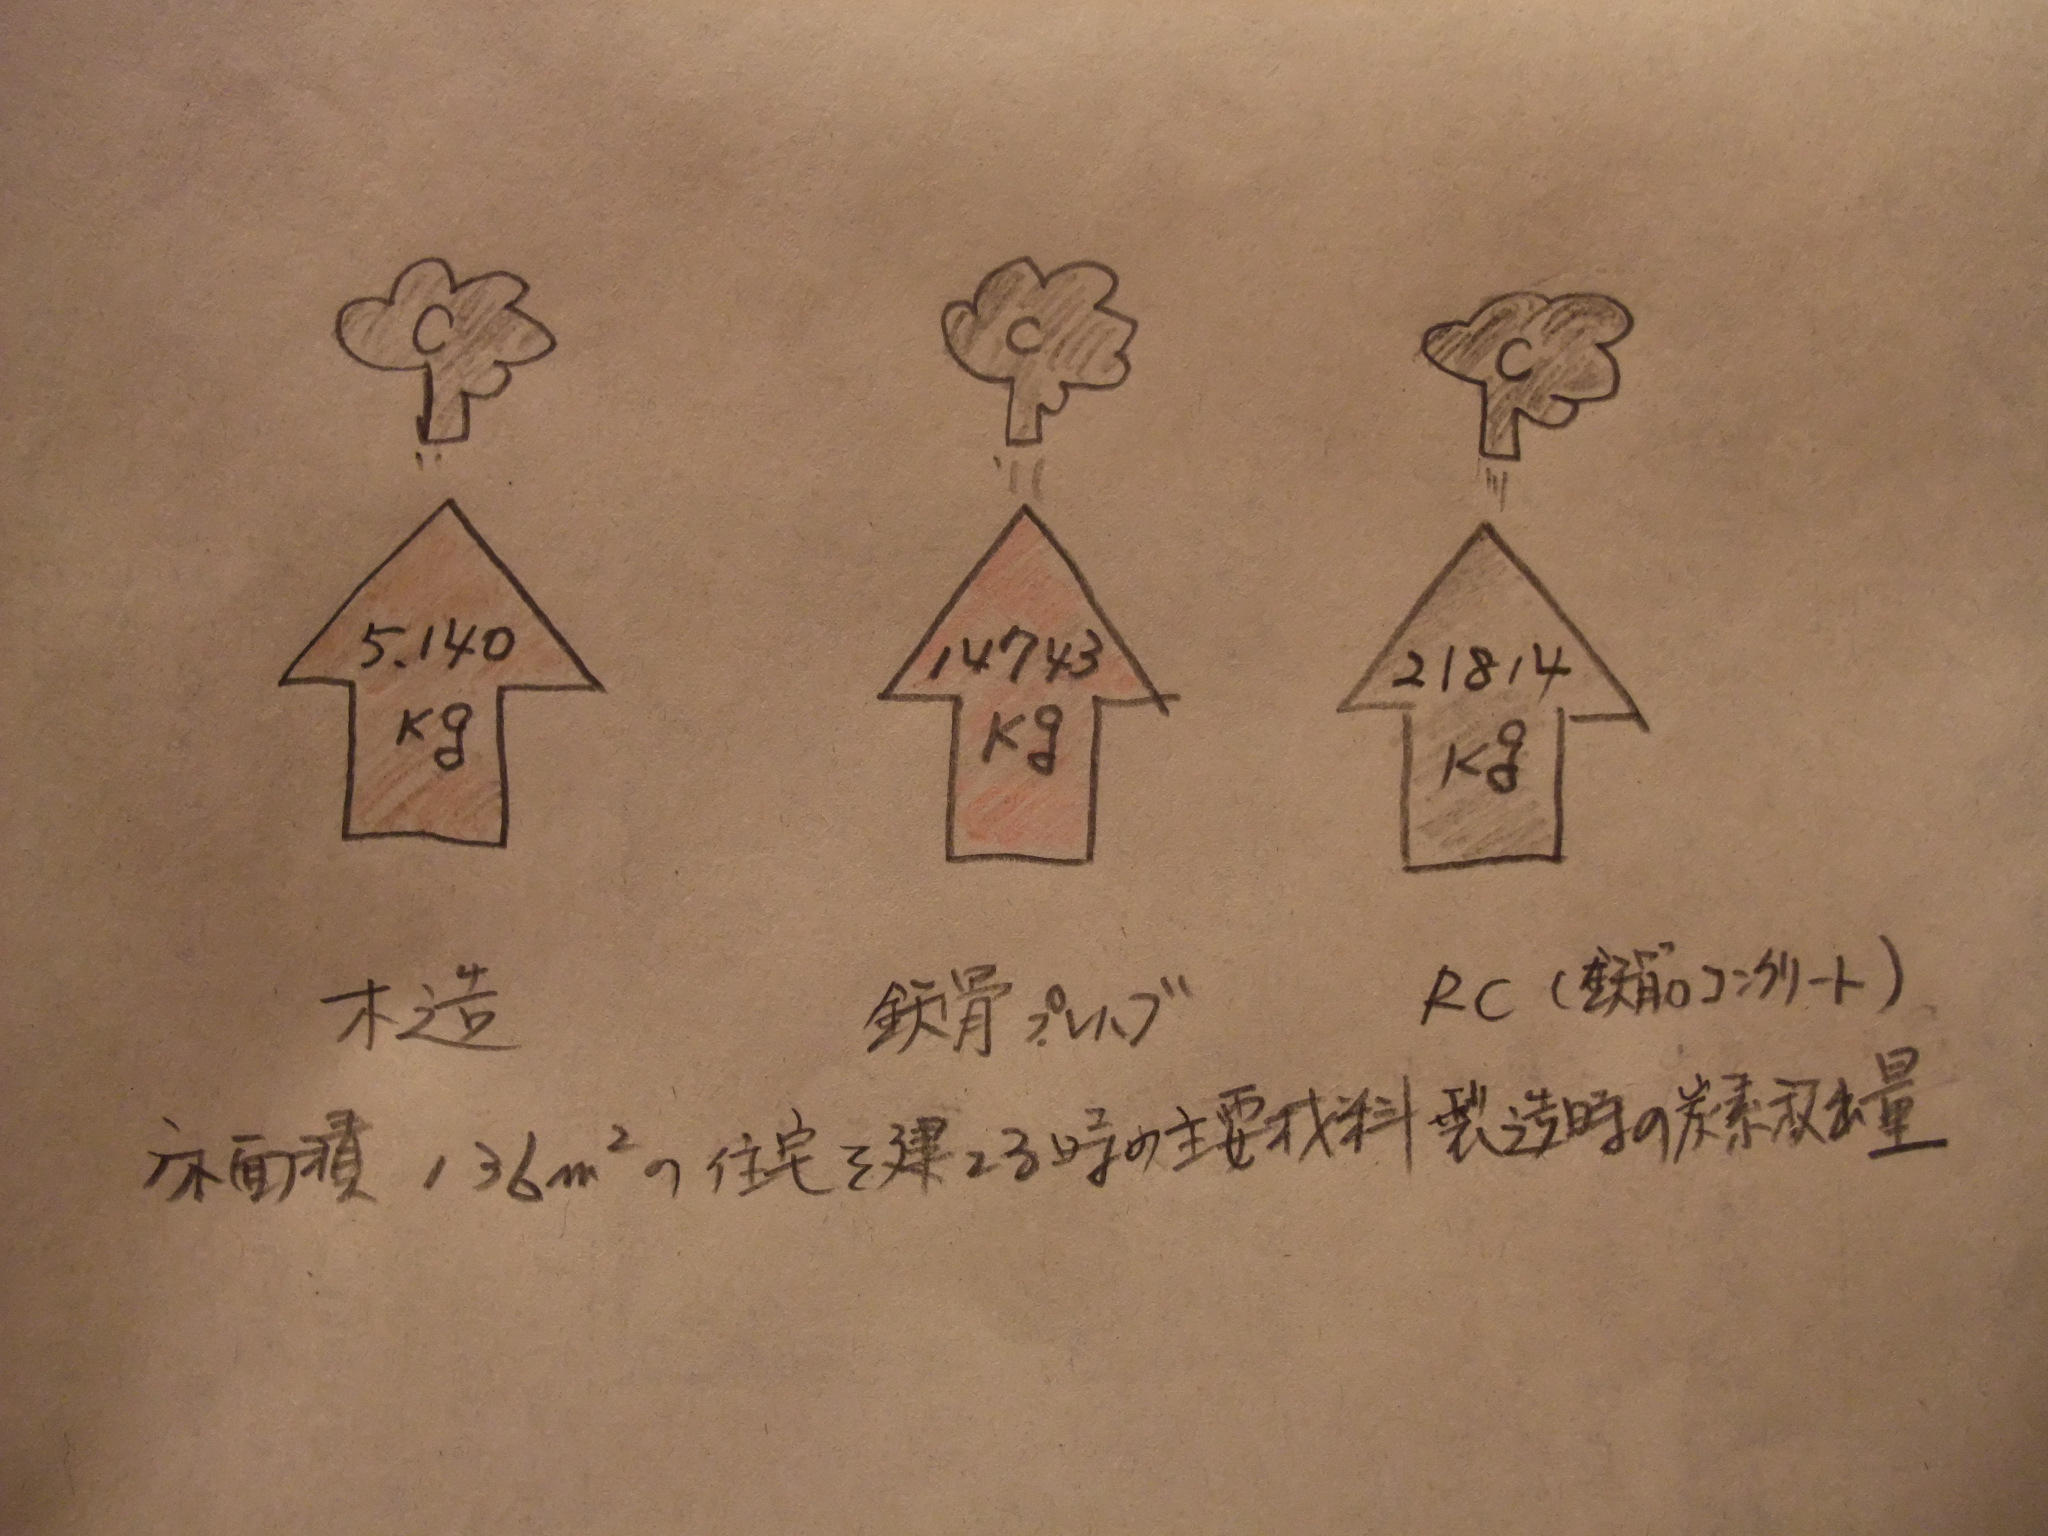 C C C
5.140 kg
14743 kg
21814 kg
木造 鉄骨プレハブ RC(鉄筋コンクリート)
床面積 136m²の住宅を建てる時の主要材料製造時の炭素放出量